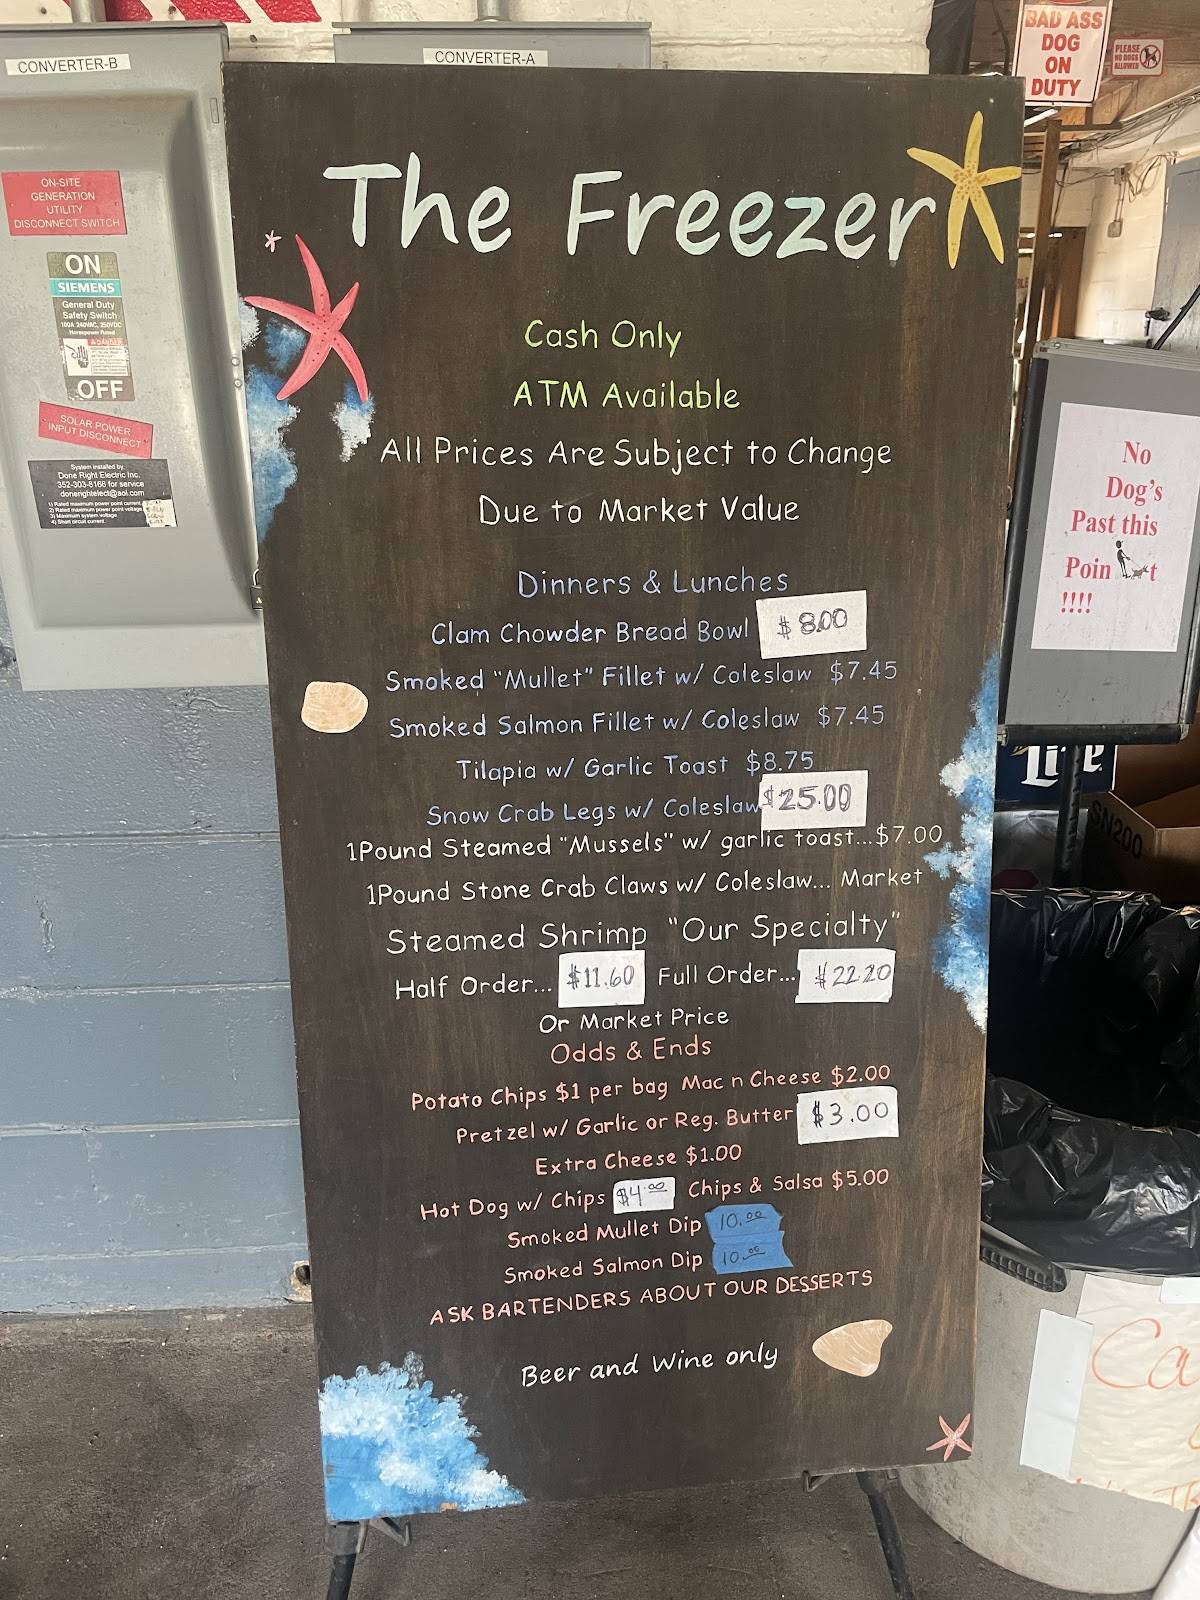 CONVERTER-B
CONVERTER-A
ON-SITE
GENERATION
UTILITY
DISCONNECT SWITCH
ON
SIEMENS
General Duty
Safety Switch
100A 240VAC, 250VDC
Horsepower Rated
DANGER
OFF
SOLAR POWER
INPUT DISCONNECT
System installed by
Done Right Electric Inc.
352-303-8166 for service
donerightelect@aol.com
1) Rated maximum power point current
2) Rated maximum power point voltage
3) Maximum system voltage
4) Short circuit current
The Freezer
Cash Only
ATM Available
All Prices Are Subject to Change
Due to Market Value
Dinners & Lunches
Clam Chowder Bread Bowl $8.00
Smoked "Mullet" Fillet w/ Coleslaw $7.45
Smoked Salmon Fillet w/ Coleslaw $7.45
Tilapia w/ Garlic Toast $8.75
Snow Crab Legs w/ Coleslaw $25.00
1Pound Steamed "Mussels" w/ garlic toast...$7.00
1Pound Stone Crab Claws w/ Coleslaw... Market
Steamed Shrimp "Our Specialty"
Half Order... $11.60 Full Order... $22.20
Or Market Price
Odds & Ends
Potato Chips $1 per bag Mac n Cheese $2.00
Pretzel w/ Garlic or Reg. Butter $3.00
Extra Cheese $1.00
Hot Dog w/ Chips $4.00 Chips & Salsa $5.00
Smoked Mullet Dip 10.00
Smoked Salmon Dip 10.00
ASK BARTENDERS ABOUT OUR DESSERTS
Beer and Wine only
BAD ASS
DOG
ON
DUTY
PLEASE
NO DOGS
ALLOWED
No
Dog's
Past this
Poin t
!!!!
Lite
SN200
Ca